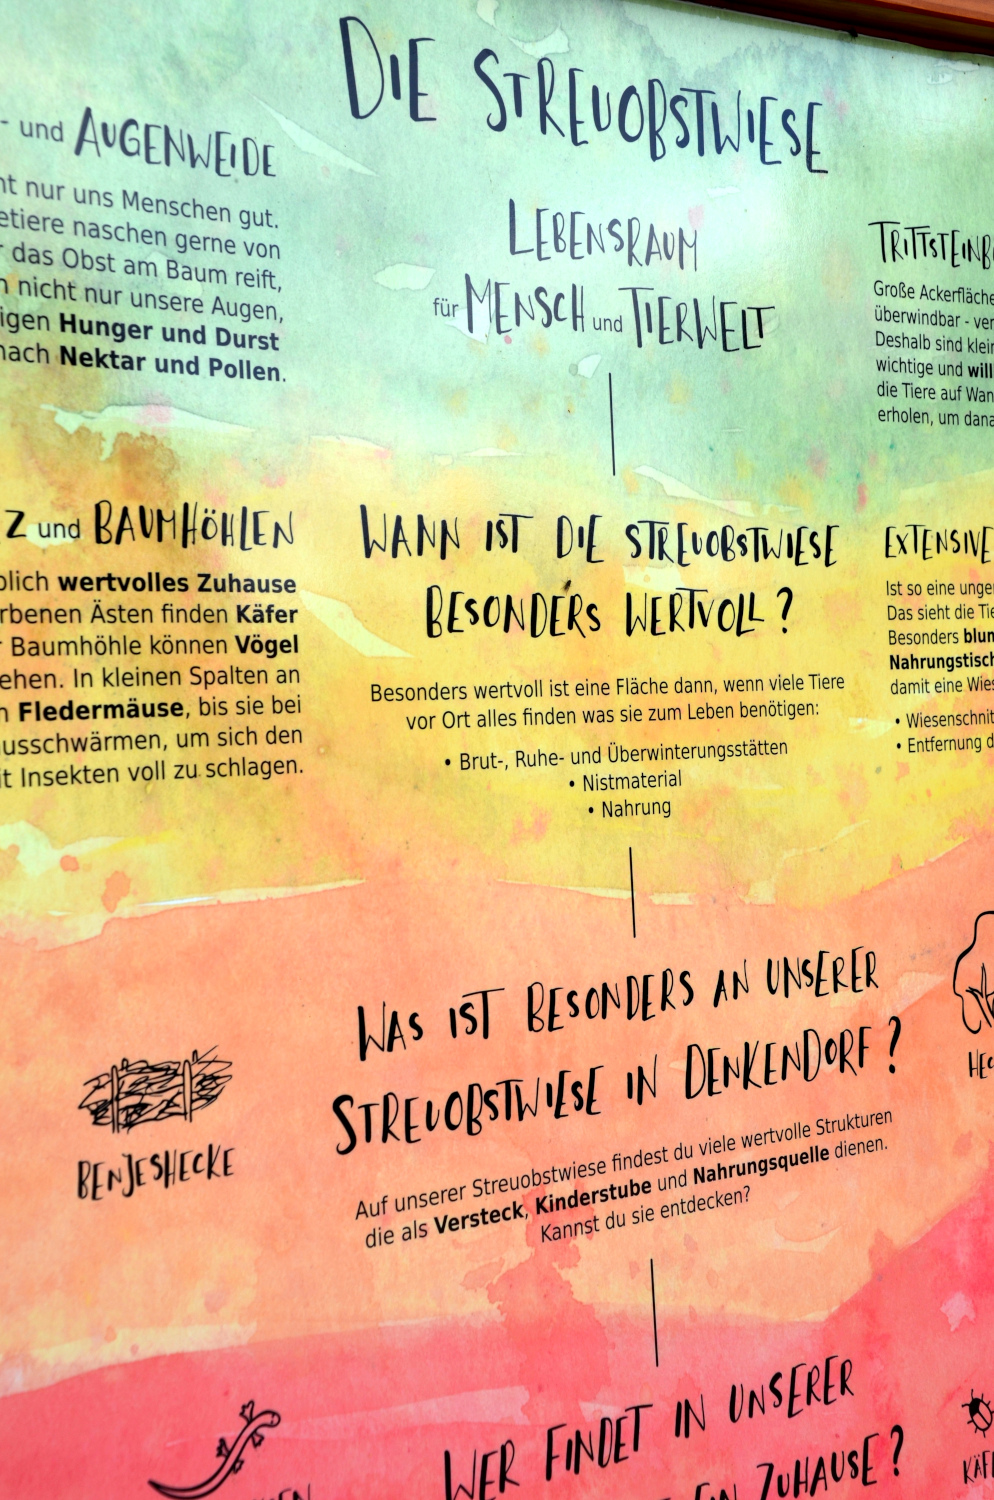 DIE STREUOBSTWIESE
- und AUGENWEIDE
nur uns Menschen gut.
naschen gerne von
das Obst am Baum reift,
nicht nur unsere Augen,
Hunger und Durst
nach Nektar und Pollen.
LEBENSRAUM
für MENSCH und TIERWELT
Große Ackerfläche
überwindbar - ver
Deshalb sind klein
wichtige und will
die Tiere auf Wan
erholen, um dana
Z und BAUMHÖHLEN
wertvolles Zuhause
rbenen Ästen finden Käfer
Baumhöhle können Vögel
ehen. In kleinen Spalten an
Fledermäuse, bis sie bei
usschwärmen, um sich den
it Insekten voll zu schlagen.
WANN IST DIE STREUOBSTWIESE
BESONDERS WERTVOLL?
Besonders wertvoll ist eine Fläche dann, wenn viele Tiere
vor Ort alles finden was sie zum Leben benötigen:
• Brut-, Ruhe- und Überwinterungsstätten
• Nistmaterial
• Nahrung
EXTENSIVE
Ist so eine unge
Das sieht die Tie
Besonders blum
Nahrungstisch
damit eine Wies
• Wiesenschnit
• Entfernung d
BENJESHECKE
WAS IST BESONDERS AN UNSERER
STREUOBSTWIESE IN DENKENDORF?
Auf unserer Streuobstwiese findest du viele wertvolle Strukturen
die als Versteck, Kinderstube und Nahrungsquelle dienen.
Kannst du sie entdecken?
HEC
WER FINDET IN UNSERER
EIN ZUHAUSE?
KÄF